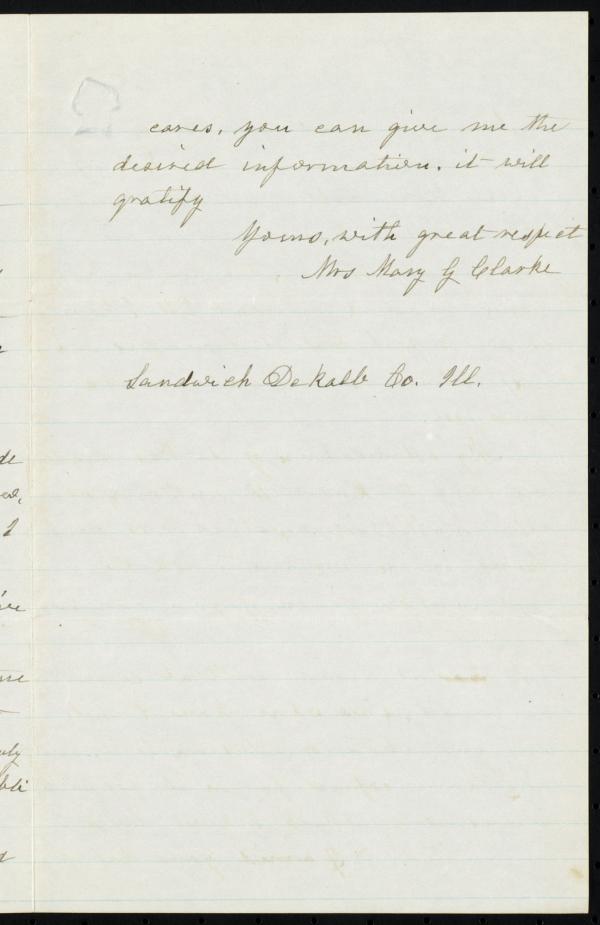 cares, you can give me the
desired information. it will
gratify
Yours, with great respect
Mrs Mary G Clarke
Sandwich DeKalb Co. Ill.